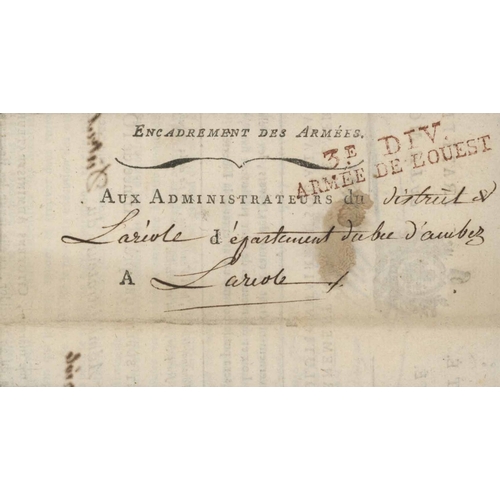 ENCADREMENT DES ARMÉES.
3E DIV.
ARMÉE DE LOUEST
AUX ADMINISTRATEURS du district de
Lariole département du bec d'ambez
A Lariole